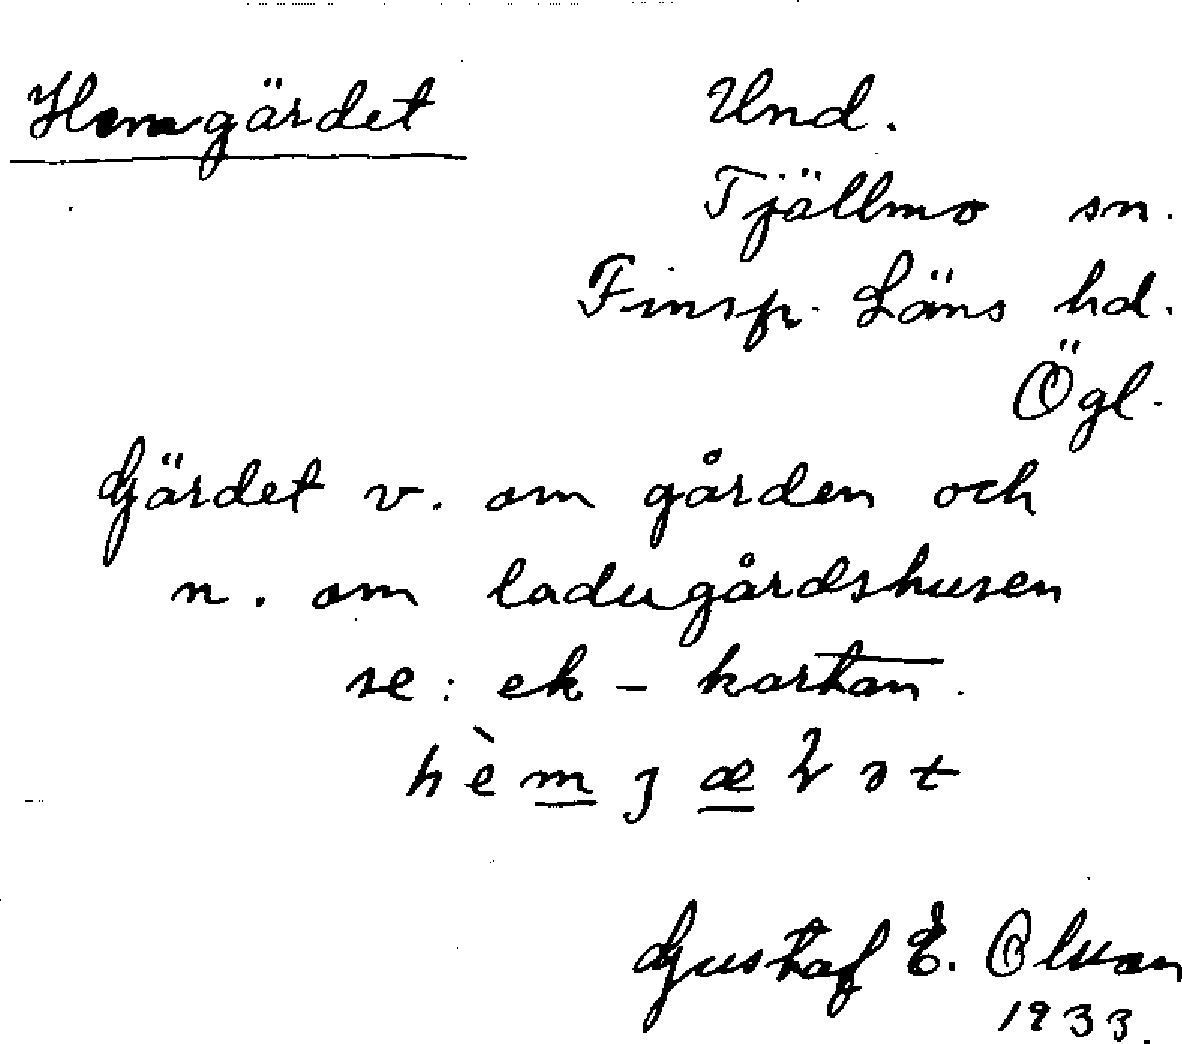 Hemgärdet
Und.
Tjällmo sn.
Finsp. Läns hd.
Ögl.
Gärdet v. om gården och
n. om ladugårdshusen
se: ek-kartan.
Gustaf E. Olsson
1933.